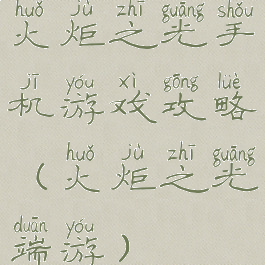 huǒ jù zhī guāng shǒu
火炬之光手
jī yóu xì gōng lüè
机游戏攻略
huǒ jù zhī guāng
(火炬之光
duān yóu
端游)